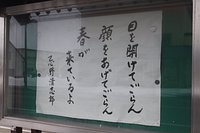 目を開けてごらん
顔をあげてごらん
春が
来ているよ
志野清志郎